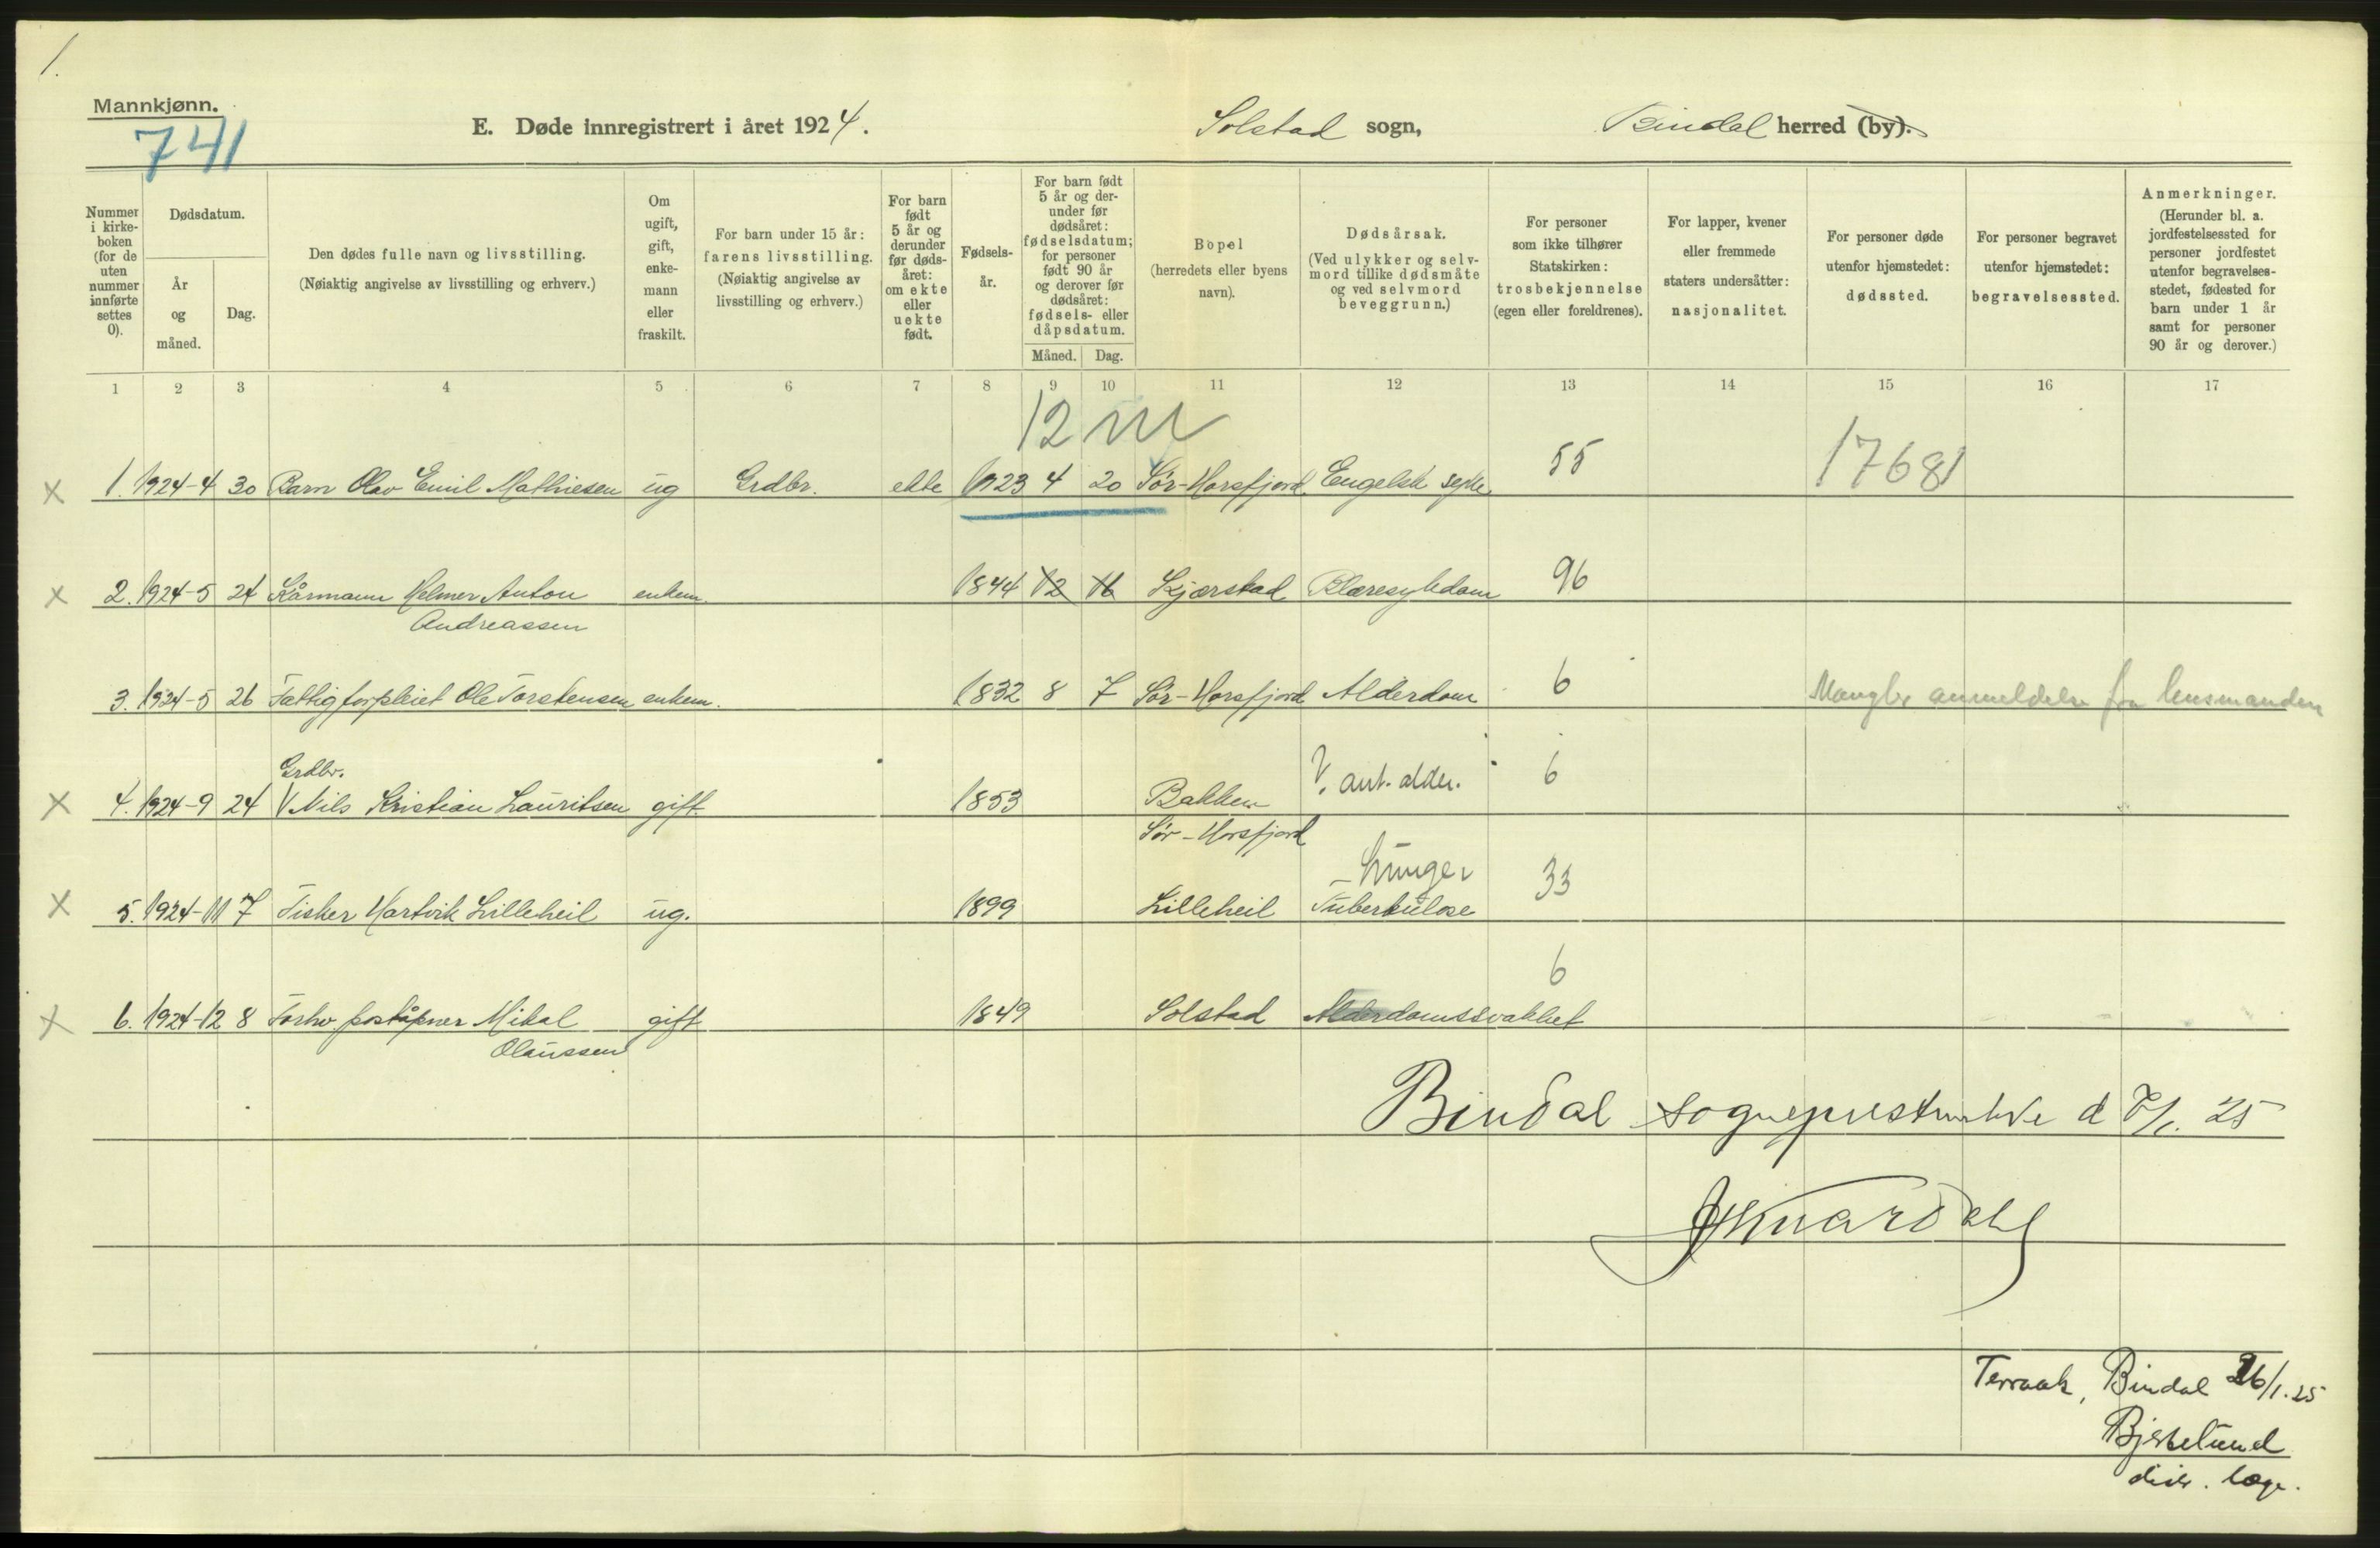 1.
Mannkjønn.
741
E. Døde innregistrert i året 1924.
Solstad sogn,
Bindal herred (by).
Nummer i kirkeboken (for de uten nummer innførte settes 0).
Dødsdatum.
År og måned.
Dag.
Den dødes fulle navn og livsstilling.
(Nøiaktig angivelse av livsstilling og erhverv.)
Om ugift, gift, enkemann eller fraskilt.
For barn under 15 år: farens livsstilling.
(Nøiaktig angivelse av livsstilling og erhverv.)
For barn født 5 år og derunder før dødsåret: om ekte eller uekte født.
Fødselsår.
For barn født 5 år og derunder før dødsåret: fødselsdatum; for personer født 90 år og derover før dødsåret: fødsels- eller dåpsdatum.
Måned. Dag.
Bopel
(herredets eller byens navn).
Dødsårsak.
(Ved ulykker og selvmord tillike dødsmåte og ved selvmord beveggrunn.)
For personer som ikke tilhører Statskirken: trosbekjennelse (egen eller foreldrenes).
For lapper, kvener eller fremmede staters undersåtter: nasjonalitet.
For personer døde utenfor hjemstedet: dødssted.
For personer begravet utenfor hjemstedet: begravelsessted.
Anmerkninger.
(Herunder bl. a. jordfestelsessted for personer jordfestet utenfor begravelsesstedet, fødested for barn under 1 år samt for personer 90 år og derover.)
1 2 3 4 5 6 7 8 9 10 11 12 13 14 15 16 17
12 m
x 1. 1924-4 30 Barn Olav Emil Mathiesen ug Grdbr. ekte 1923 4 20 Sør-Horsfjord Engelsk syke 55 17681
x 2. 1924-5 24 Kårmann Helmer Anton enkem. 1844 12 16 Skjærstad Blæresykdom 96
Andreassen
3. 1924-5 26 Fattigforpleiet Ole Torstensen enkem. 1832 8 7 Sør-Horsfjord Alderdom 6 Mangler anmeldelse fra lensmanden
Grdbr.
x 4. 1924-9 24 V Nils Kristian Lauritsen gift 1853 Bakken V. ant. alder. 6
Sør-Horsfjord
- Lunge
x 5. 1924-11 7 Fisker Hartvik Lilleheil ug. 1899 Lilleheil Tuberkulose 33
x 6. 1924-12 8 Forhv. poståpner Mikal gift 1849 Solstad Alderdomssvakhet 6
Olaussen
Bindal sogneprestembede d 7/1. 25
Terraak, Bindal 26/1. 25
distr. læge.